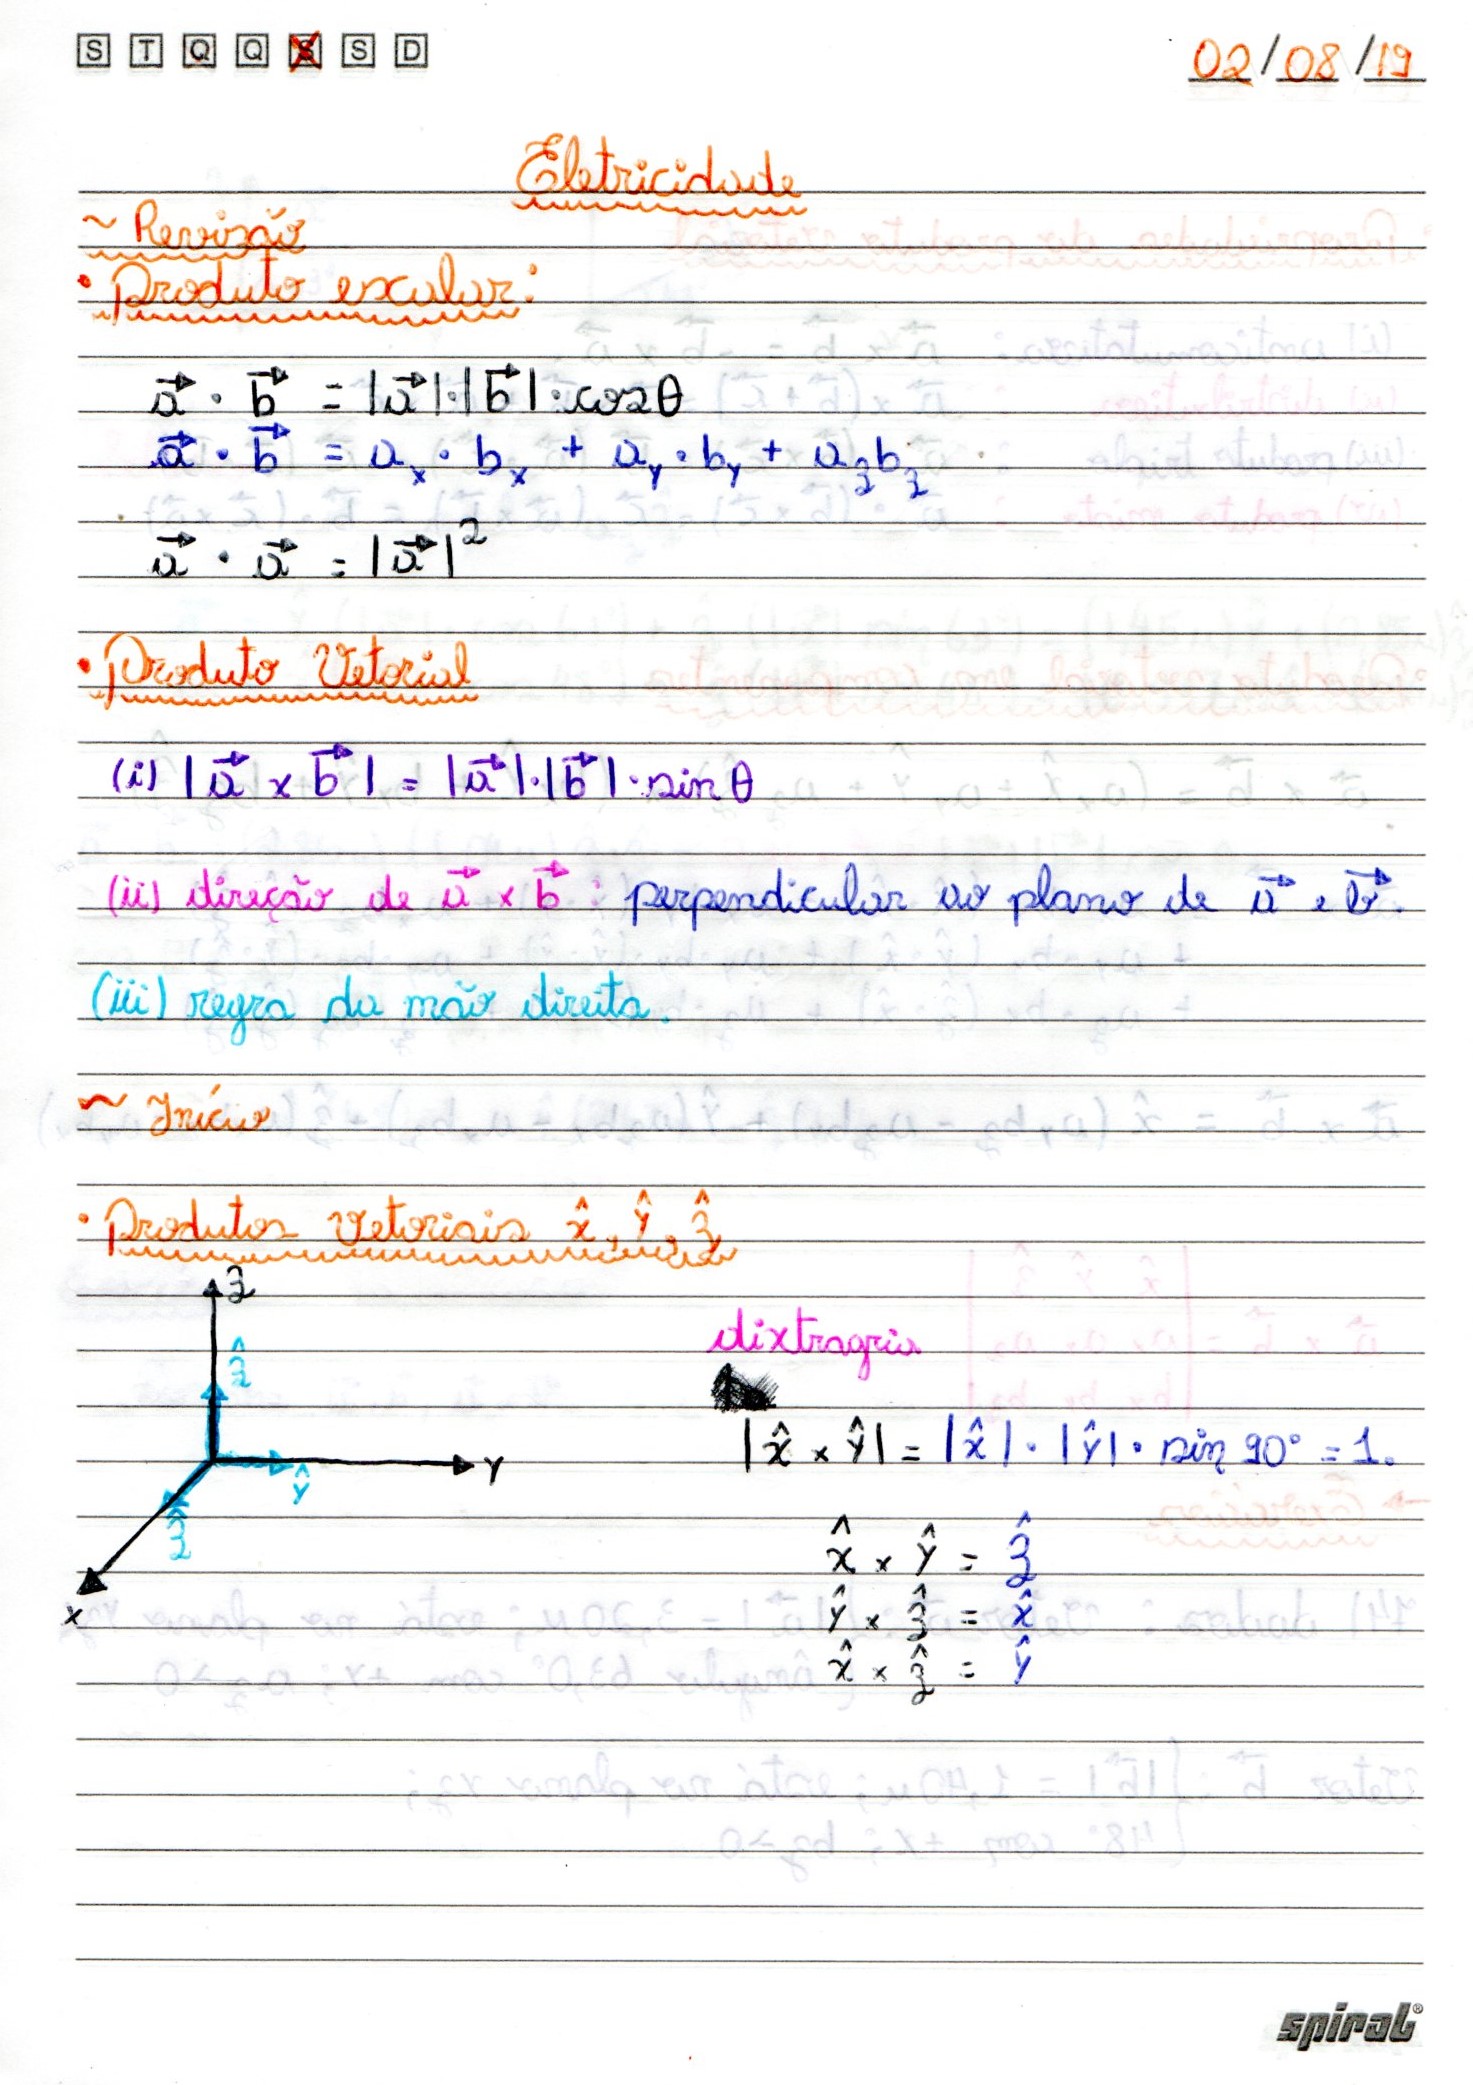 S T Q Q S S D
02/08/19
Eletricidade
~ Revisão
• Produto escalar:
a⃗ · b⃗ = |a⃗|·|b⃗|·cosθ
a⃗ · b⃗ = aₓ · bₓ + aᵧ · bᵧ + a_z b_z
a⃗ · a⃗ = |a⃗|²
• Produto Vetorial
(i) |a⃗ × b⃗| = |a⃗|·|b⃗|·sin θ
(ii) direção de a⃗ × b⃗ : perpendicular ao plano de a⃗ e b⃗.
(iii) regra da mão direita.
~ Início
• Produtos vetoriais x̂, ŷ, ẑ
z
ẑ
dixtragria
|x̂ × ŷ| = |x̂| · |ŷ| · sin 90° = 1.
y
ŷ
ẑ
x̂ × ŷ = ẑ
x
ŷ × ẑ = x̂
x̂ × ẑ = ŷ
spiral®